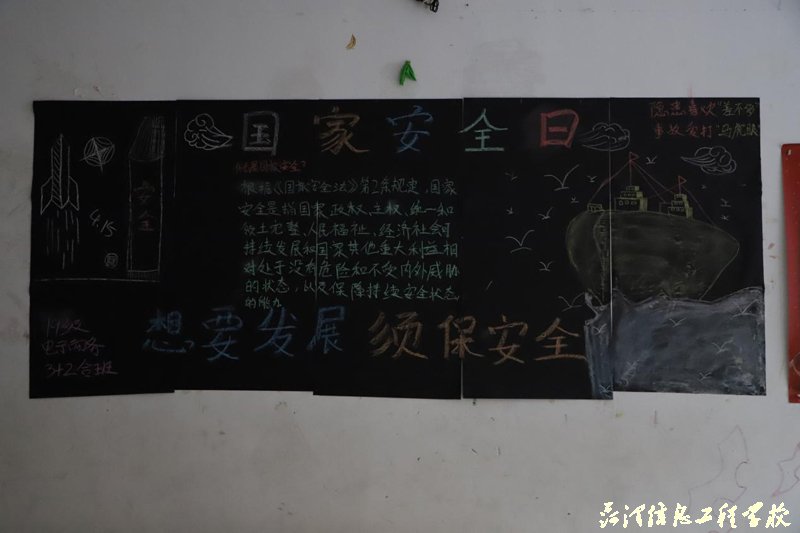 国家安全日
隐患喜欢"差不多"
事故爱封"马虎眼"
4.15
安全
什么是国家安全?
根据《国家安全法》第2条规定,国家
安全是指国家政权、主权、统一和
领土完整、人民福祉、经济社会可
持续发展和国家其他重大利益相
对处于没有危险和不受内外威胁
的状态,以及保障持续安全状态
的能力
想要发展 须保安全
19级
电子商务
3+2合班
信息工程学校